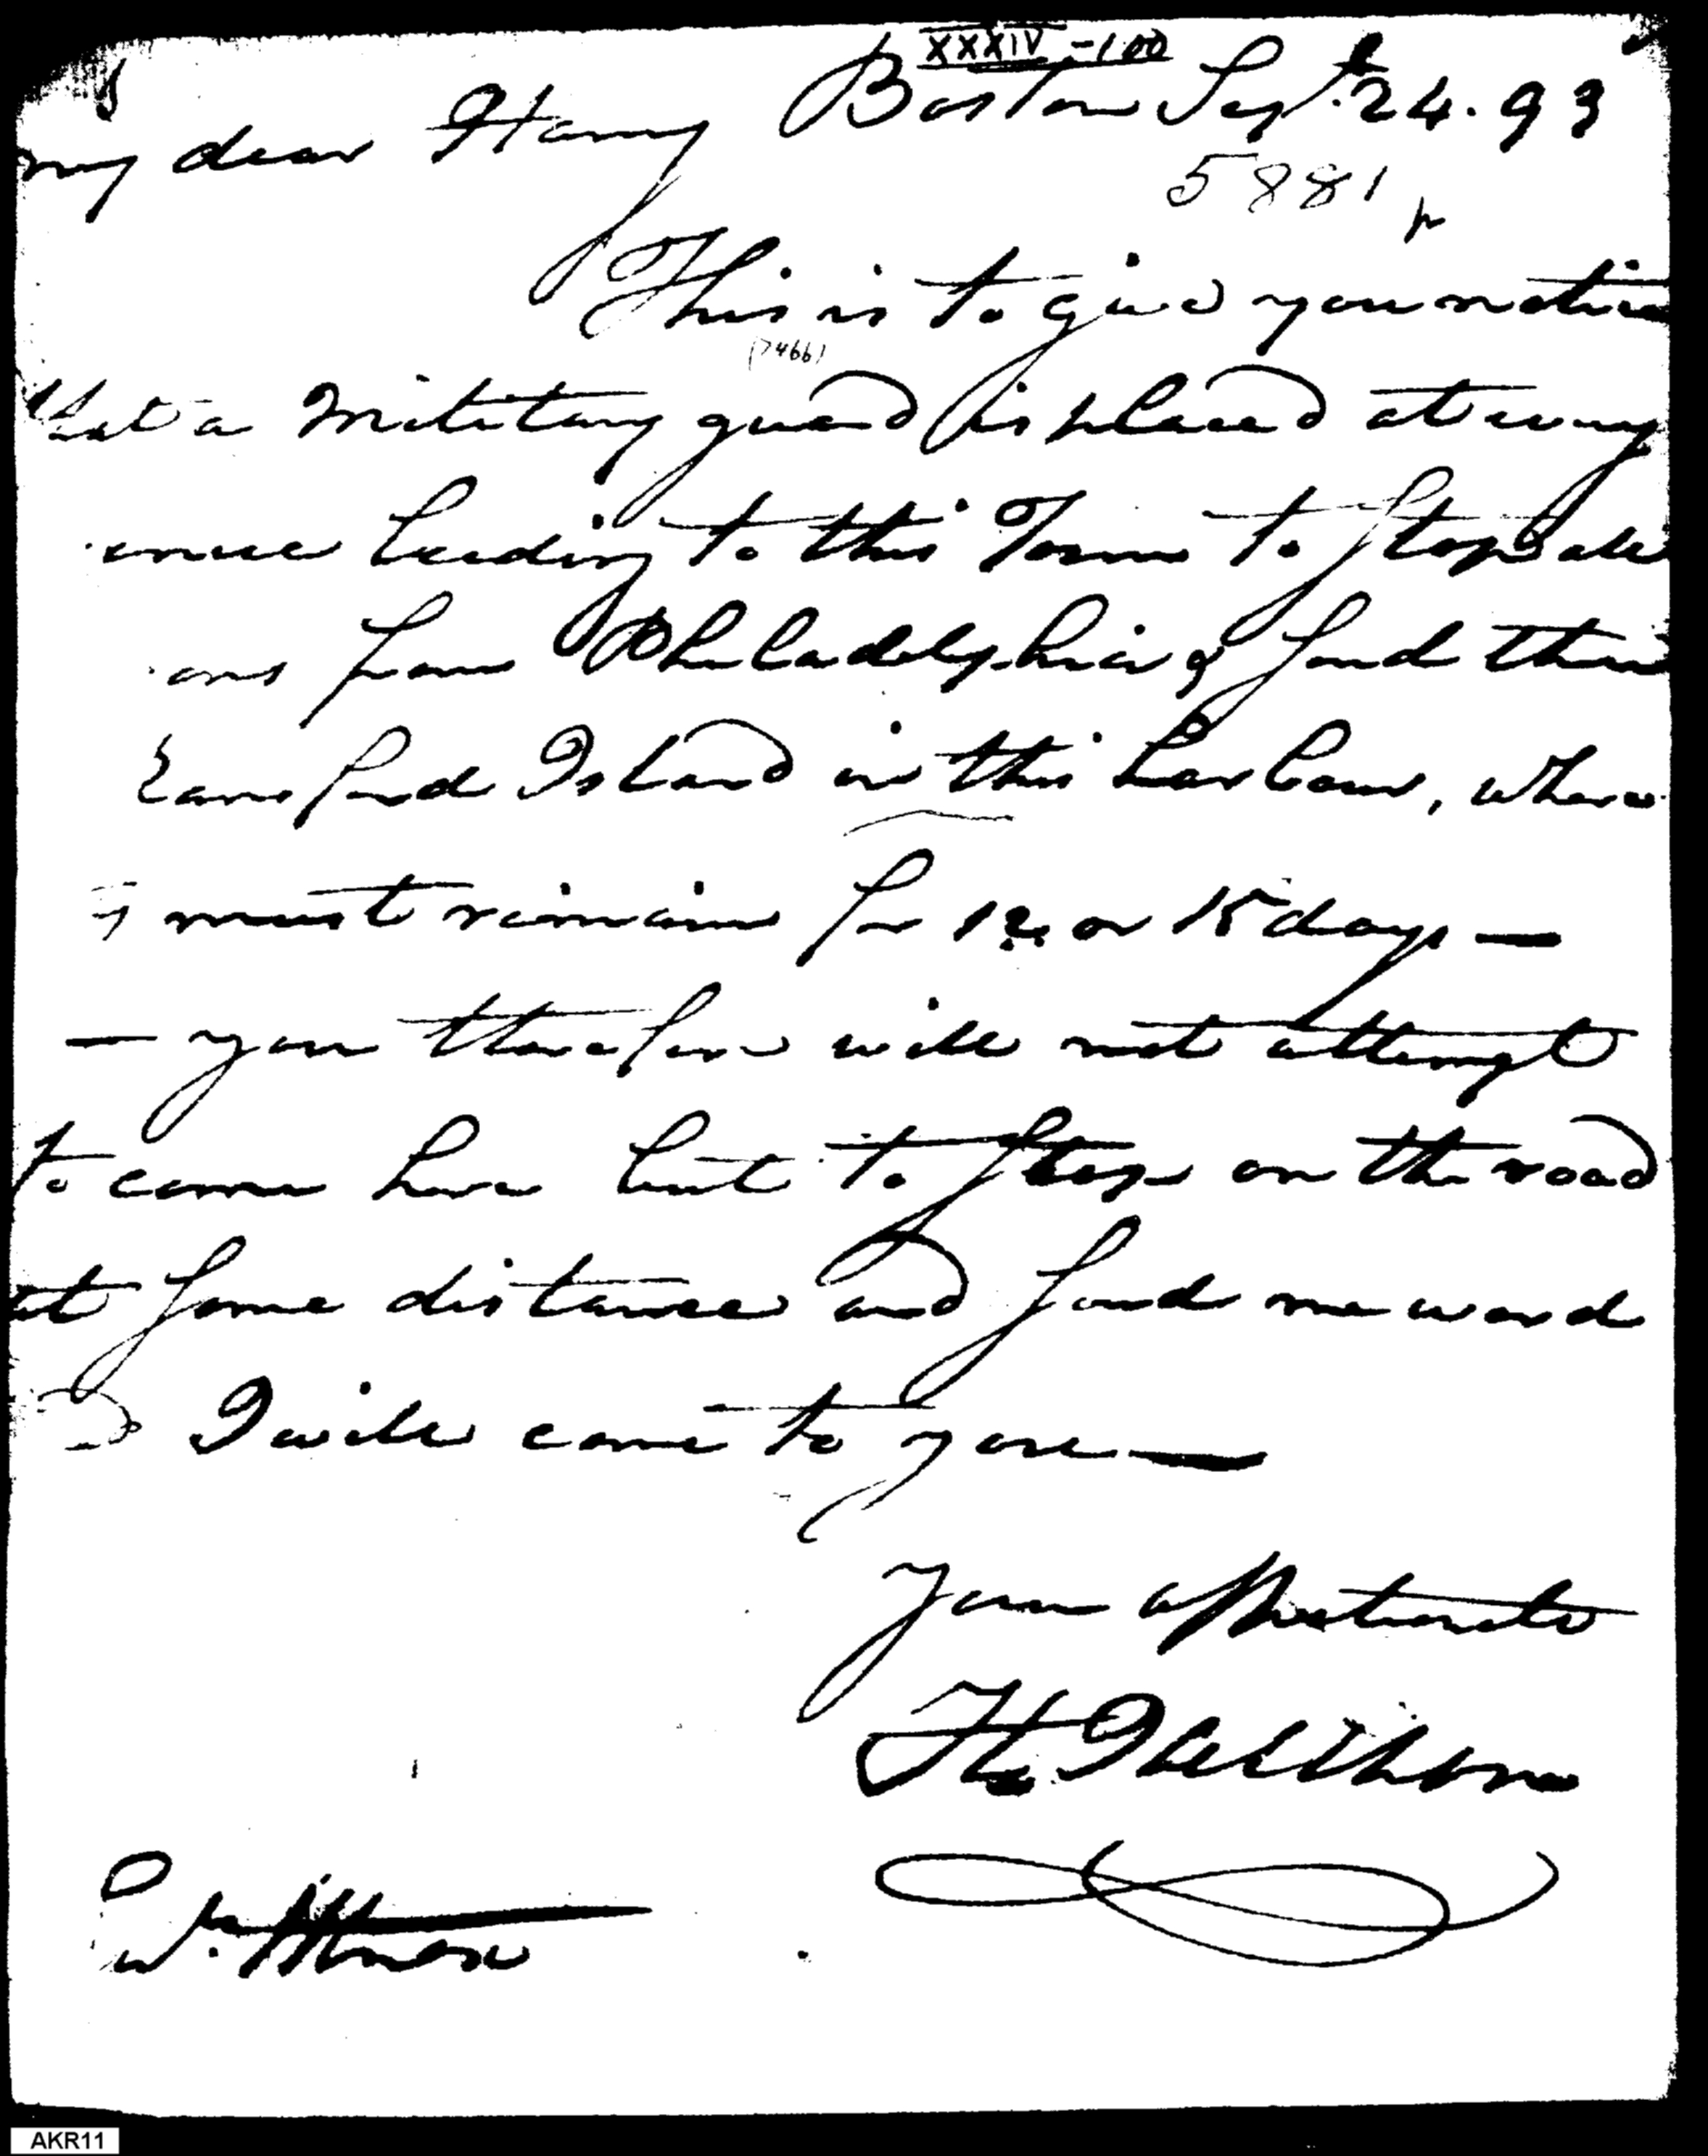 XXXIV-100
Boston Sept. 24. 93
my dear Harry
5881
This is to give you notice
(7466)
that a military guard is placed at every
enue leading to this Town to stop all
ons from Philadelphia & send them
Rainsford Island in this harbour, where
y must remain for 12 or 15 days —
— you therefore will not attempt
to come here but to stop on the road
at some distance and send me word
I will come to you —
your affectionate
H
W. Knox
AKR11